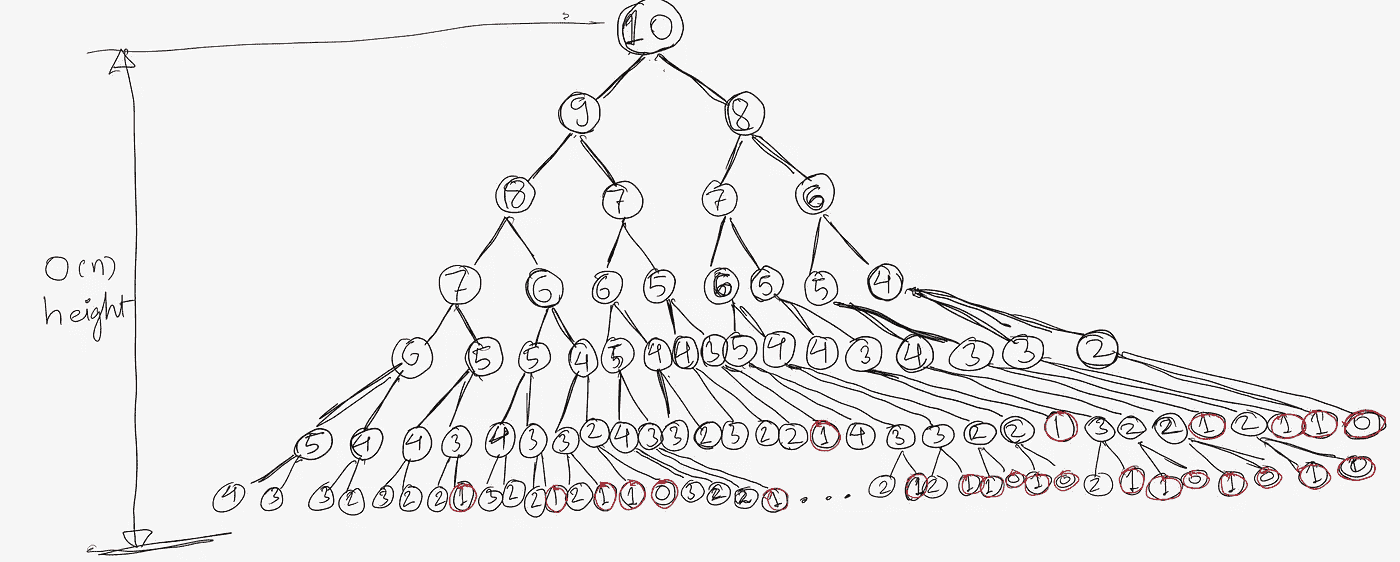 10
9 8
8 7 7 6
O(n)
height
7 6 6 5 6 5 5 4
6 5 5 4 5 4 4 3 5 4 4 3 4 3 3 2
5 4 4 3 4 3 3 2 4 3 3 2 3 2 2 1 4 3 3 2 2 1 3 2 2 1 2 1 1 0
4 3 3 2 3 2 2 1 3 2 2 1 2 1 1 0 3 2 2 1 ... 2 1 2 1 1 0 1 0 2 1 1 0 1 0 1 0